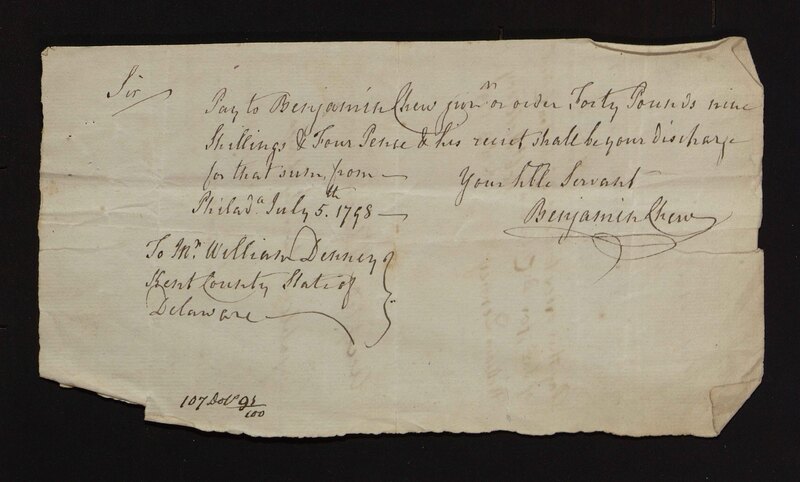 Sir
Pay to Benjamin Chew junr. or order Forty Pounds nine
Shillings & Four Pense & his reciet shall be your discharge
for that sum, from
Your hble Servant
Philada. July 5th. 1798
Benjamin Chew
To Mr. William Denney
Kent County State of
Delaware
107 Dols 98/100